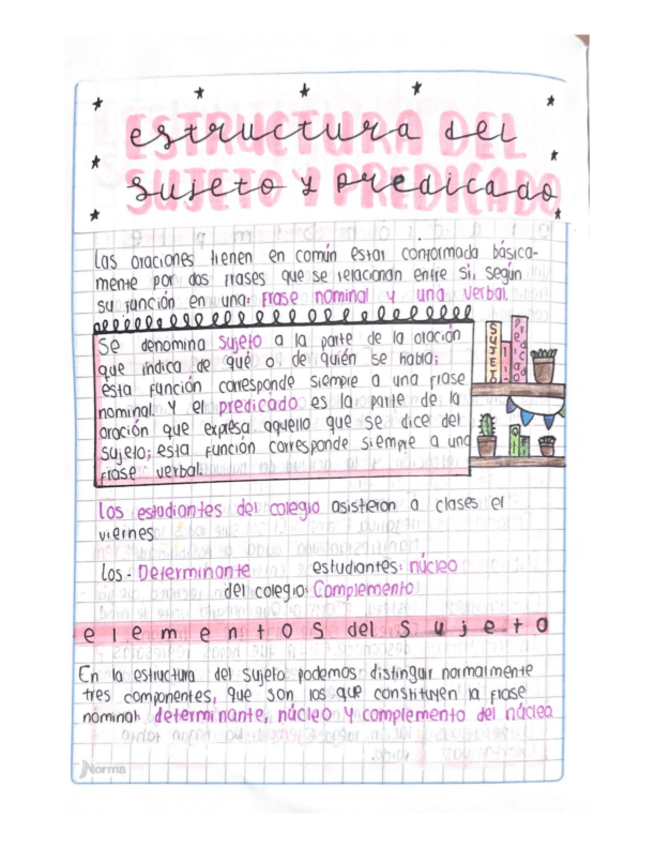 estructura del
sujeto y predicado
Las oraciones tienen en común estar conformada básica-
mente por dos frases que se relacionan entre si, según
su función en una: Frase nominal y una verbal.
Se denomina sujeto a la parte de la oración
que indica de qué o de quién se habla;
esta función corresponde siempre a una frase
nominal. Y el predicado es la parte de la
oración que expresa aquello que se dice del
sujeto; esta función corresponde siempre a una
frase verbal.
SUJETO
Predicado
Los estudiantes del colegio asistieron a clases el
viernes
Los - Determinante estudiantes: núcleo
del colegio: Complemento
elementos del Sujeto
En la estructura del sujeto podemos distinguir normalmente
tres componentes, que son los que constituyen la frase
nominal: determinante, núcleo y complemento del núcleo
Norma